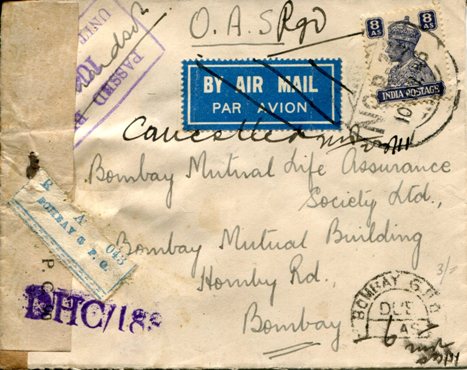 O.A.S Rgd
8 AS 8 AS
INDIA POSTAGE
PASSED B
BY AIR MAIL
PAR AVION
Cancelled
Bombay Mutual Life Assurance
Society Ltd.,
Bombay Mutual Building
Hornby Rd.,
Bombay
R. A. 043
BOMBAY G P O.
DHC/18
3/-
BOMBAY G.P.O.
DUE
AS